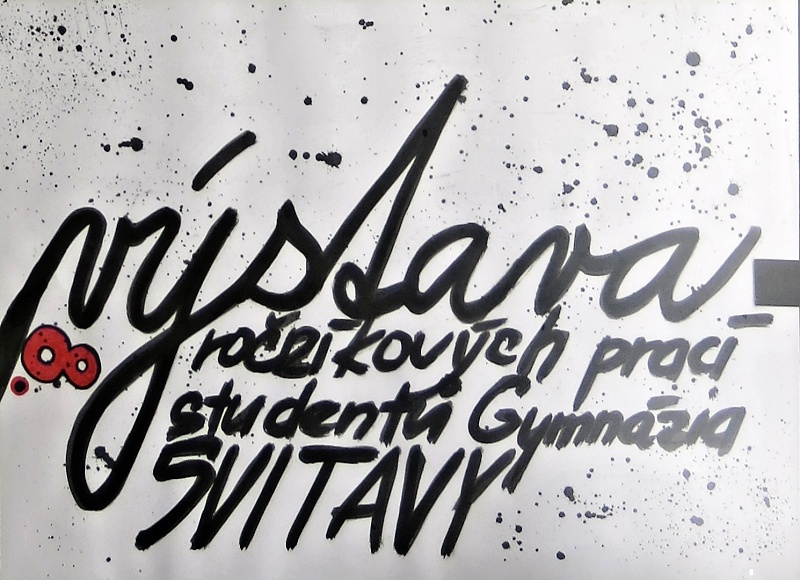 výstava
ročníkových prací
studentů Gymnázia
SVITAVY